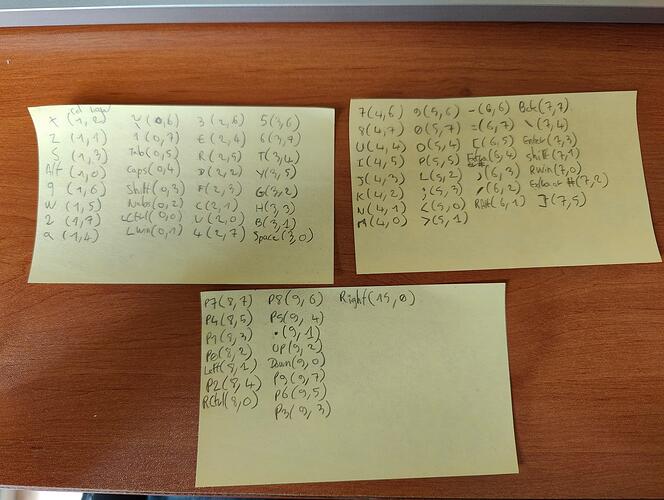 col row
X (1,2) (0,6) 3 (2,6) 5 (3,6)
Z (1,1) 1 (0,7) E (2,4) 6 (3,7)
S (1,3) Tab (0,5) R (2,5) T (3,4)
Alt (1,0) Caps (0,4) D (2,2) Y (3,5)
9 (1,6) Shift (0,3) F (2,3) G (3,2)
W (1,5) Nubs (0,2) C (2,1) H (3,3)
2 (1,7) LCtrl (0,0) V (2,0) B (3,1)
a (1,4) Lwin (0,1) 4 (2,7) Space (3,0)
7 (4,6) 9 (5,6) - (6,6) Bck (7,7)
8 (4,7) 0 (5,7) = (6,7) \ (7,4)
U (4,4) O (5,4) [ (6,5) Enter (7,3)
I (4,5) P (5,5) (6,4) shift (7,1)
J (4,3) L (5,2) (6,3) RWin (7,0)
K (4,2) ; (5,3) (6,2) # (7,2)
N (4,1) < (5,0) RAlt (6,1) ] (7,5)
M (4,0) > (5,1)
P7 (8,7) P8 (9,6) Right (15,0)
P4 (8,5) P5 (9,4)
P1 (8,3) . (9,1)
P0 (8,2) UP (9,2)
Left (8,1) Down (9,0)
P2 (8,4) P9 (9,7)
RCtrl (8,0) P6 (9,5)
P3 (9,3)